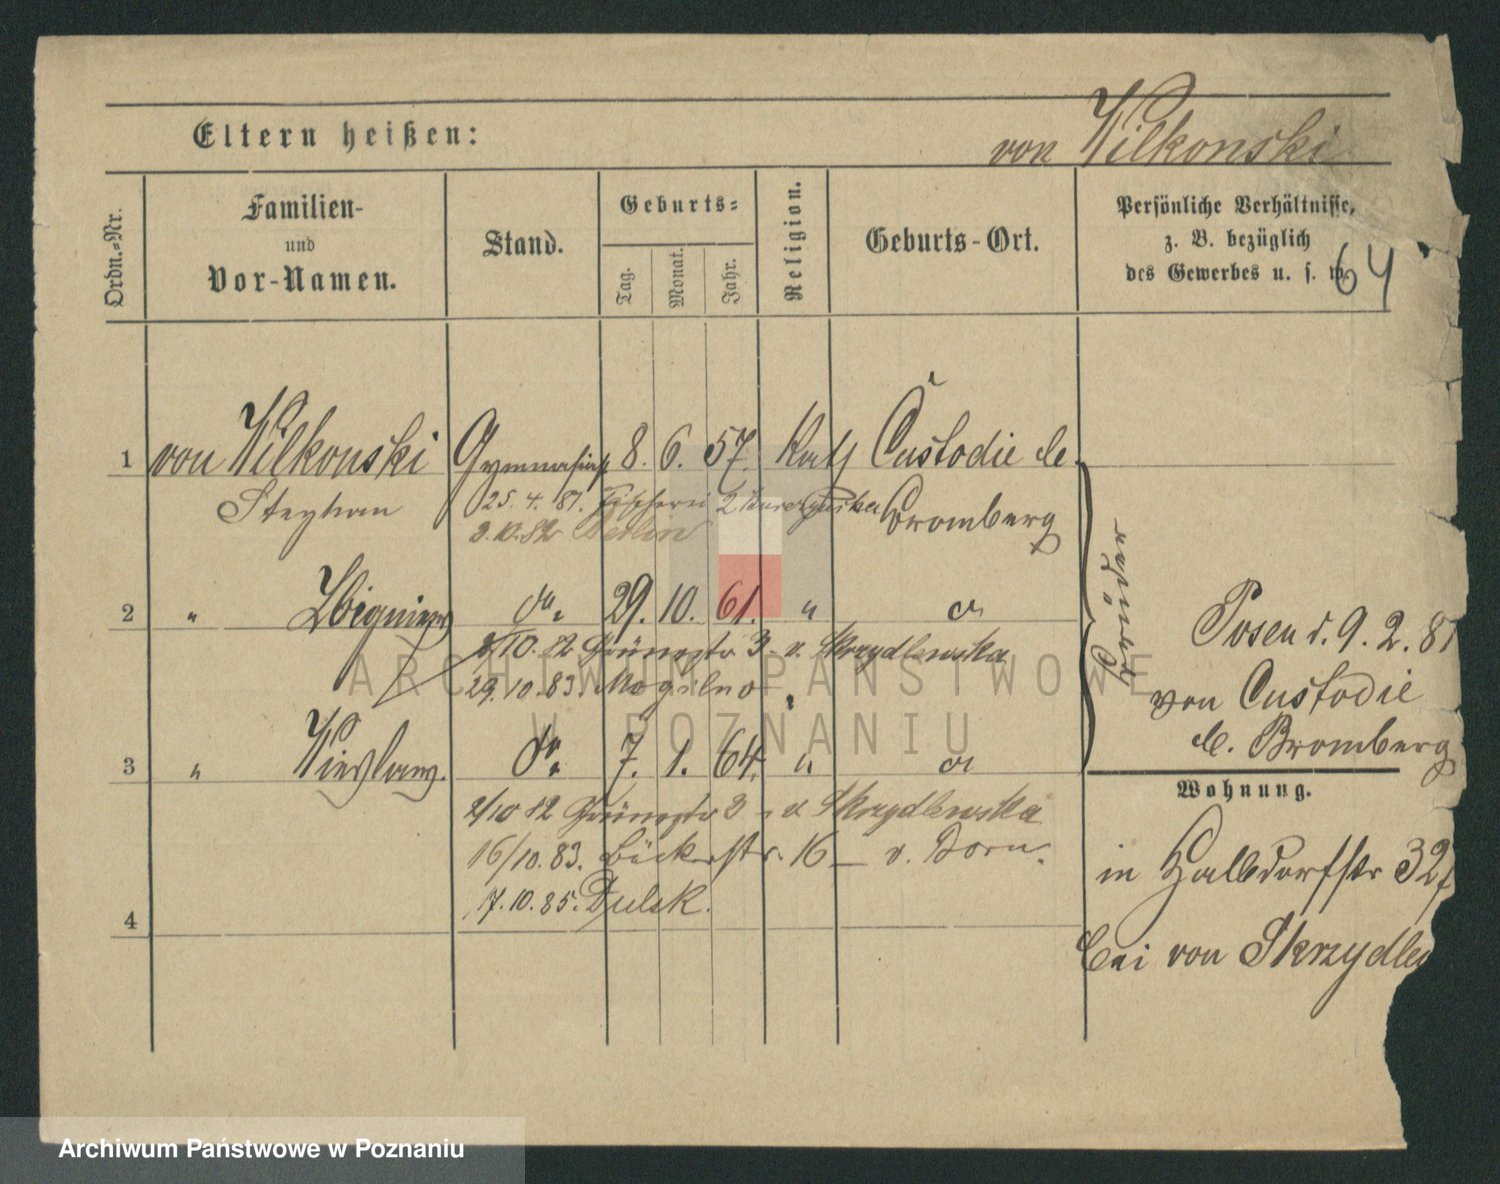 von Wilkonski
Eltern heißen:
Ordn.-Nr.
Familien-
und
Vor-Namen.
Stand.
Geburts-
Tag.
Monat.
Jahr.
Religion.
Geburts-Ort.
Persönliche Verhältnisse,
z. B. bezüglich
des Gewerbes u. s. w.
64
1 von Wilkonski Gymnasiast 8. 6. 57. Kath Custodie be
Stephan 25. 4. 81. Fischerei 2
Bromberg
2.10.82 Berlin
2 " Zbigniew do. 29. 10. 61. "
2/10.82 Grünestr 3 - v. Skrzydlewska
29.10.83. Mogilno
3 " do. 7. 1. 64. "
2/10 82 Grünestr 3 - v Skrzydlewska
16/10.83. Bäckerstr. 16 - v. Dorn.
7.10.85.
4
Brüder
Posen d. 9. 2. 81
von Custodie
b. Bromberg
Wohnung.
in Halbdorfstr 32
bei von Skrzydlew
ARCHIWUM PAŃSTWOWE
W POZNANIU
Archiwum Państwowe w Poznaniu